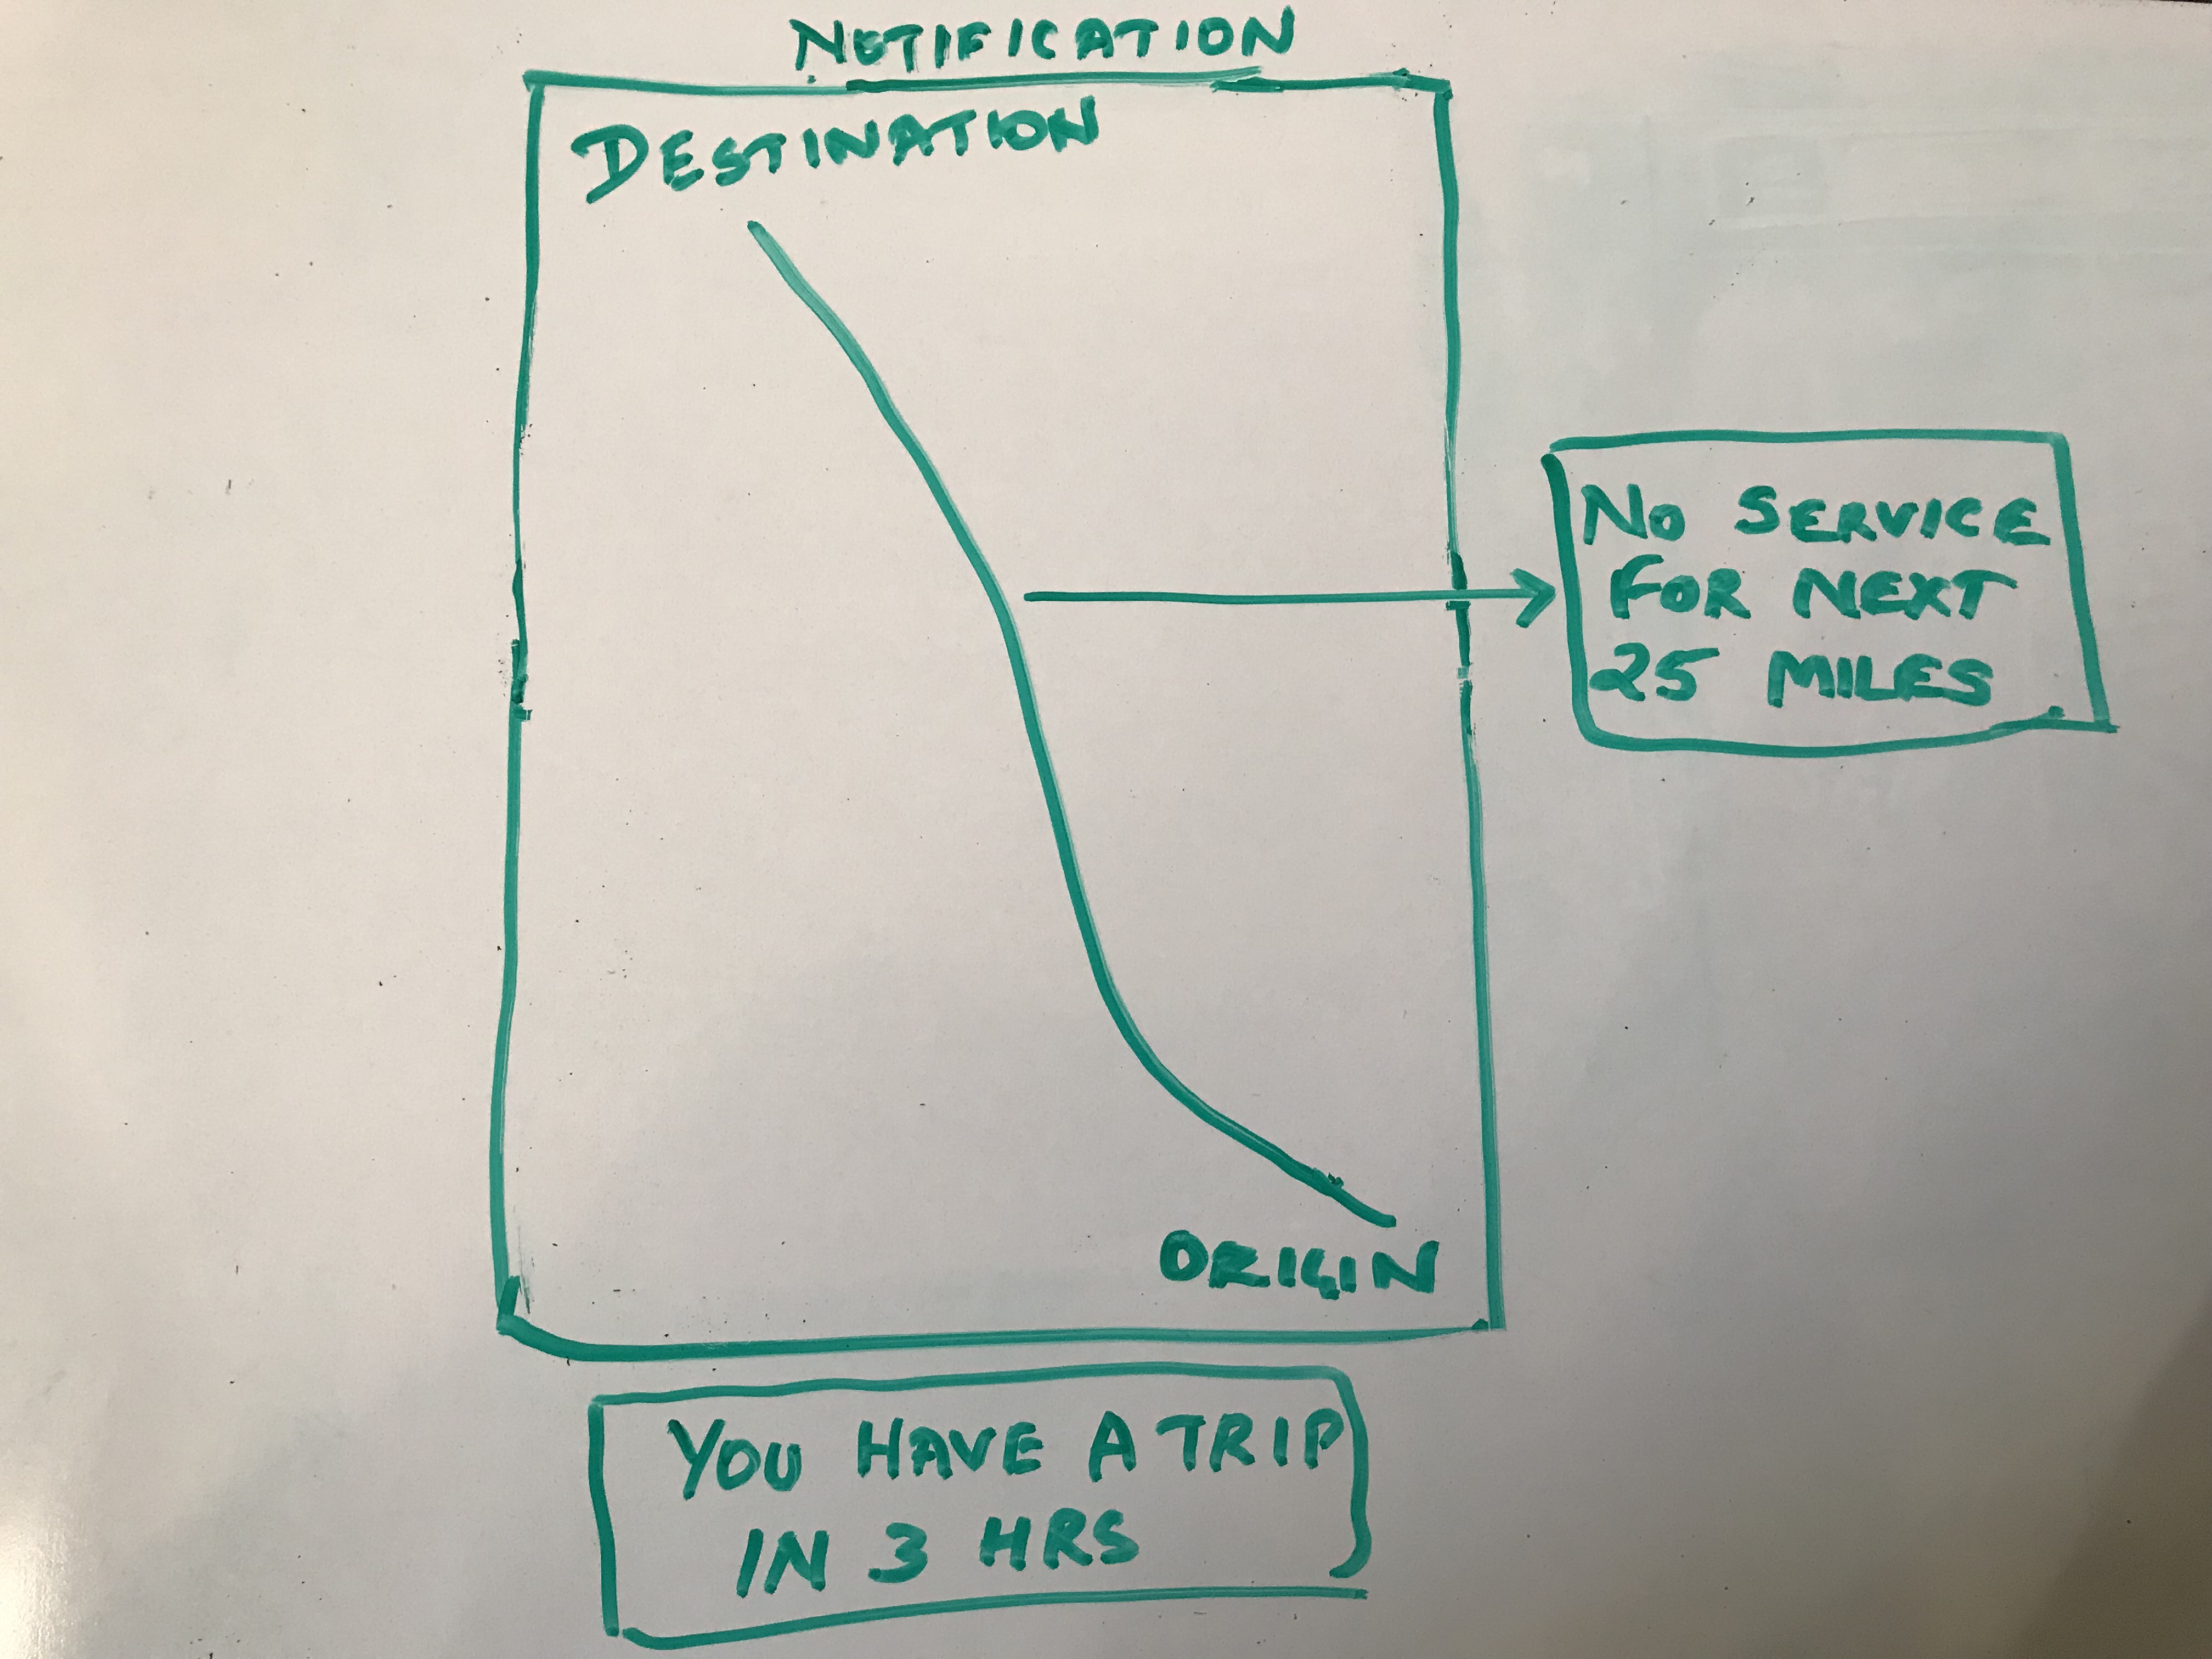 NOTIFICATION
DESTINATION
NO SERVICE
FOR NEXT
25 MILES
ORIGIN
YOU HAVE A TRIP
IN 3 HRS